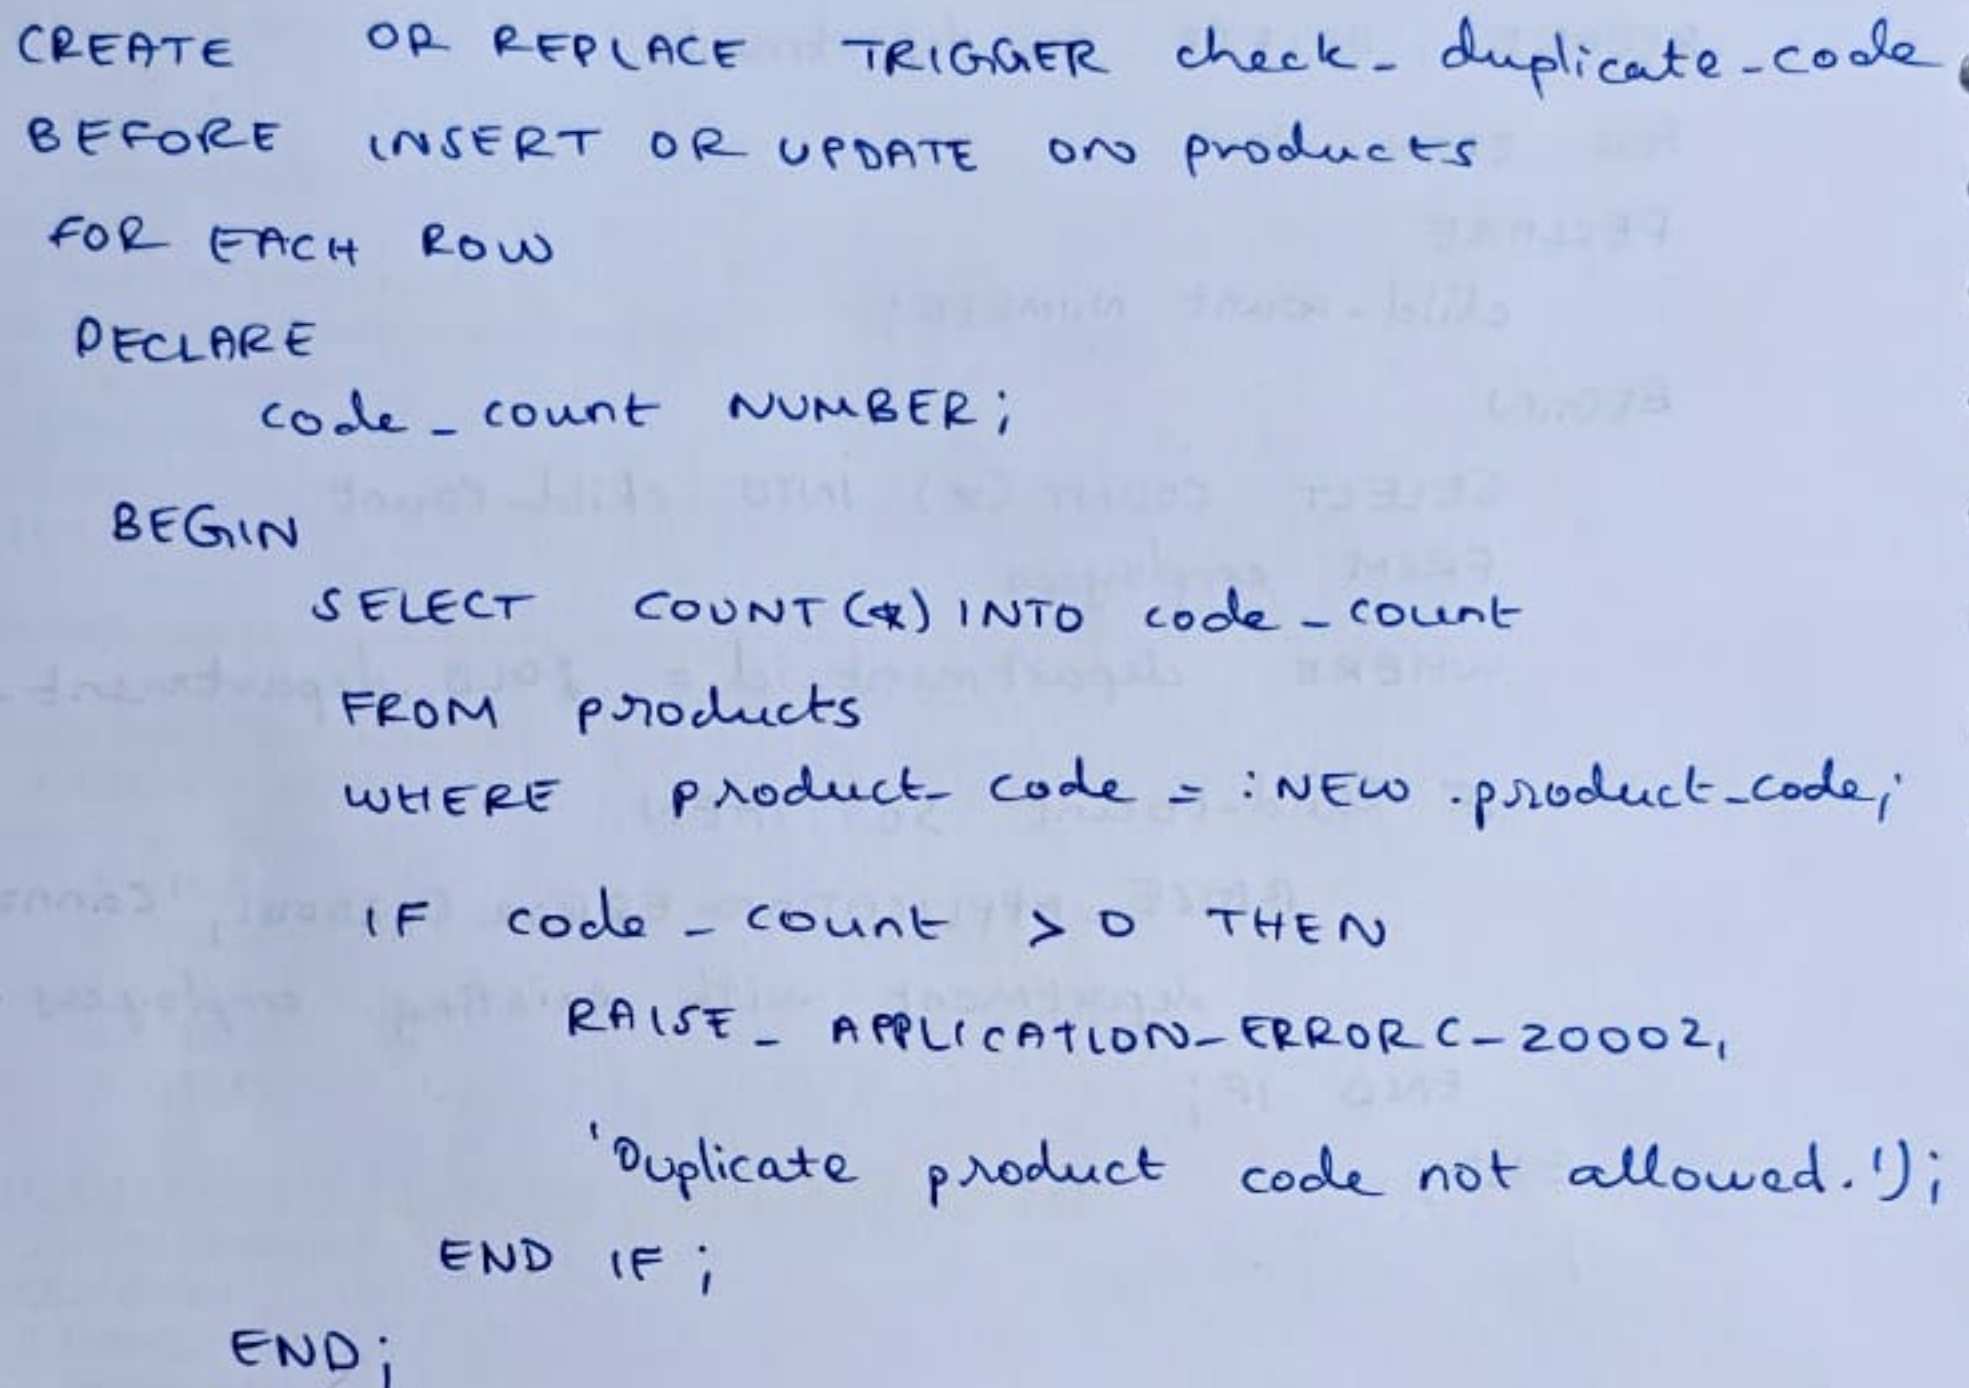 CREATE OR REPLACE TRIGGER check_duplicate_code
BEFORE INSERT OR UPDATE ON products
FOR EACH ROW
DECLARE
code_count NUMBER;
BEGIN
SELECT COUNT(*) INTO code_count
FROM products
WHERE product_code = :NEW.product_code;
IF code_count > 0 THEN
RAISE_APPLICATION_ERROR(-20002,
'Duplicate product code not allowed.');
END IF;
END;